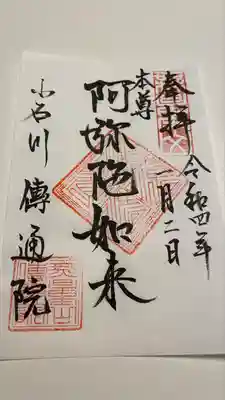 奉拝
令和四年
一月二日
本尊
阿弥陀如来
小石川
傳通院